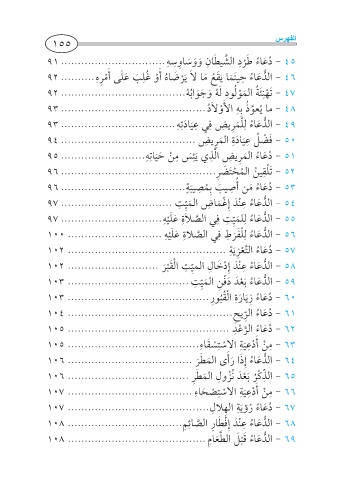 الفهرس
١٥٥
٤٥ - دُعَاءُ طَرْدِ الشَّيْطَانِ وَوَسَاوِسِهِ ............ ٩١
٤٦ - الدُّعَاءُ حِينَمَا يَقَعُ مَا لاَ يَرْضَاهُ أَوْ غُلِبَ عَلَى أَمْرِهِ ............ ٩٢
٤٧ - تَهْنِئَةُ الْمَوْلُودِ لَهُ وَجَوَابُهُ ............ ٩٢
٤٨ - ما يُعوَّذُ بِهِ الأَوْلاَدُ ............ ٩٣
٤٩ - الدُّعَاءُ لِلْمَرِيضِ فِي عِيَادَتِهِ ............ ٩٣
٥٠ - فَضْلُ عِيَادَةِ المَرِيضِ ............ ٩٤
٥١ - دُعَاءُ المَرِيضِ الَّذِي يَئِسَ مِنْ حَيَاتِهِ ............ ٩٥
٥٢ - تَلْقِينُ المُحْتَضَرِ ............ ٩٦
٥٣ - دُعَاءُ مَن أُصِيبَ بِمُصِيبَةٍ ............ ٩٦
٥٤ - الدُّعَاءُ عِنْدَ إِغْمَاضِ المَيِّتِ ............ ٩٧
٥٥ - الدُّعَاءُ لِلمَيِّتِ فِي الصَّلاَةِ عَلَيْهِ ............ ٩٧
٥٦ - الدُّعَاءُ لِلْفَرَطِ فِي الصَّلاَةِ عَلَيْهِ ............ ١٠٠
٥٧ - دُعَاءُ التَّعْزِيَةِ ............ ١٠٢
٥٨ - الدُّعَاءُ عِنْدَ إِدْخَالِ الميِّتِ الْقَبْرَ ............ ١٠٢
٥٩ - الدُّعَاءُ بَعْدَ دَفْنِ المَيِّتِ ............ ١٠٣
٦٠ - دُعَاءُ زِيَارَةِ الْقُبُورِ ............ ١٠٣
٦١ - دُعَاءُ الرِّيحِ ............ ١٠٤
٦٢ - دُعَاءُ الرَّعْدِ ............ ١٠٥
٦٣ - مِنْ أَدْعِيَةِ الاسْتِسْقَاءِ ............ ١٠٥
٦٤ - الدُّعَاءُ إِذَا رَأَى المَطَرَ ............ ١٠٦
٦٥ - الذِّكْرُ بَعْدَ نُزُولِ المَطَرِ ............ ١٠٦
٦٦ - مِنْ أَدْعِيَةِ الاسْتِصْحَاءِ ............ ١٠٧
٦٧ - دُعَاءُ رُؤْيَةِ الهِلالِ ............ ١٠٧
٦٨ - الدُّعَاءُ عِنْدَ إِفْطَارِ الصَّائِمِ ............ ١٠٨
٦٩ - الدُّعَاءُ قَبْلَ الطَّعَامِ ............ ١٠٨